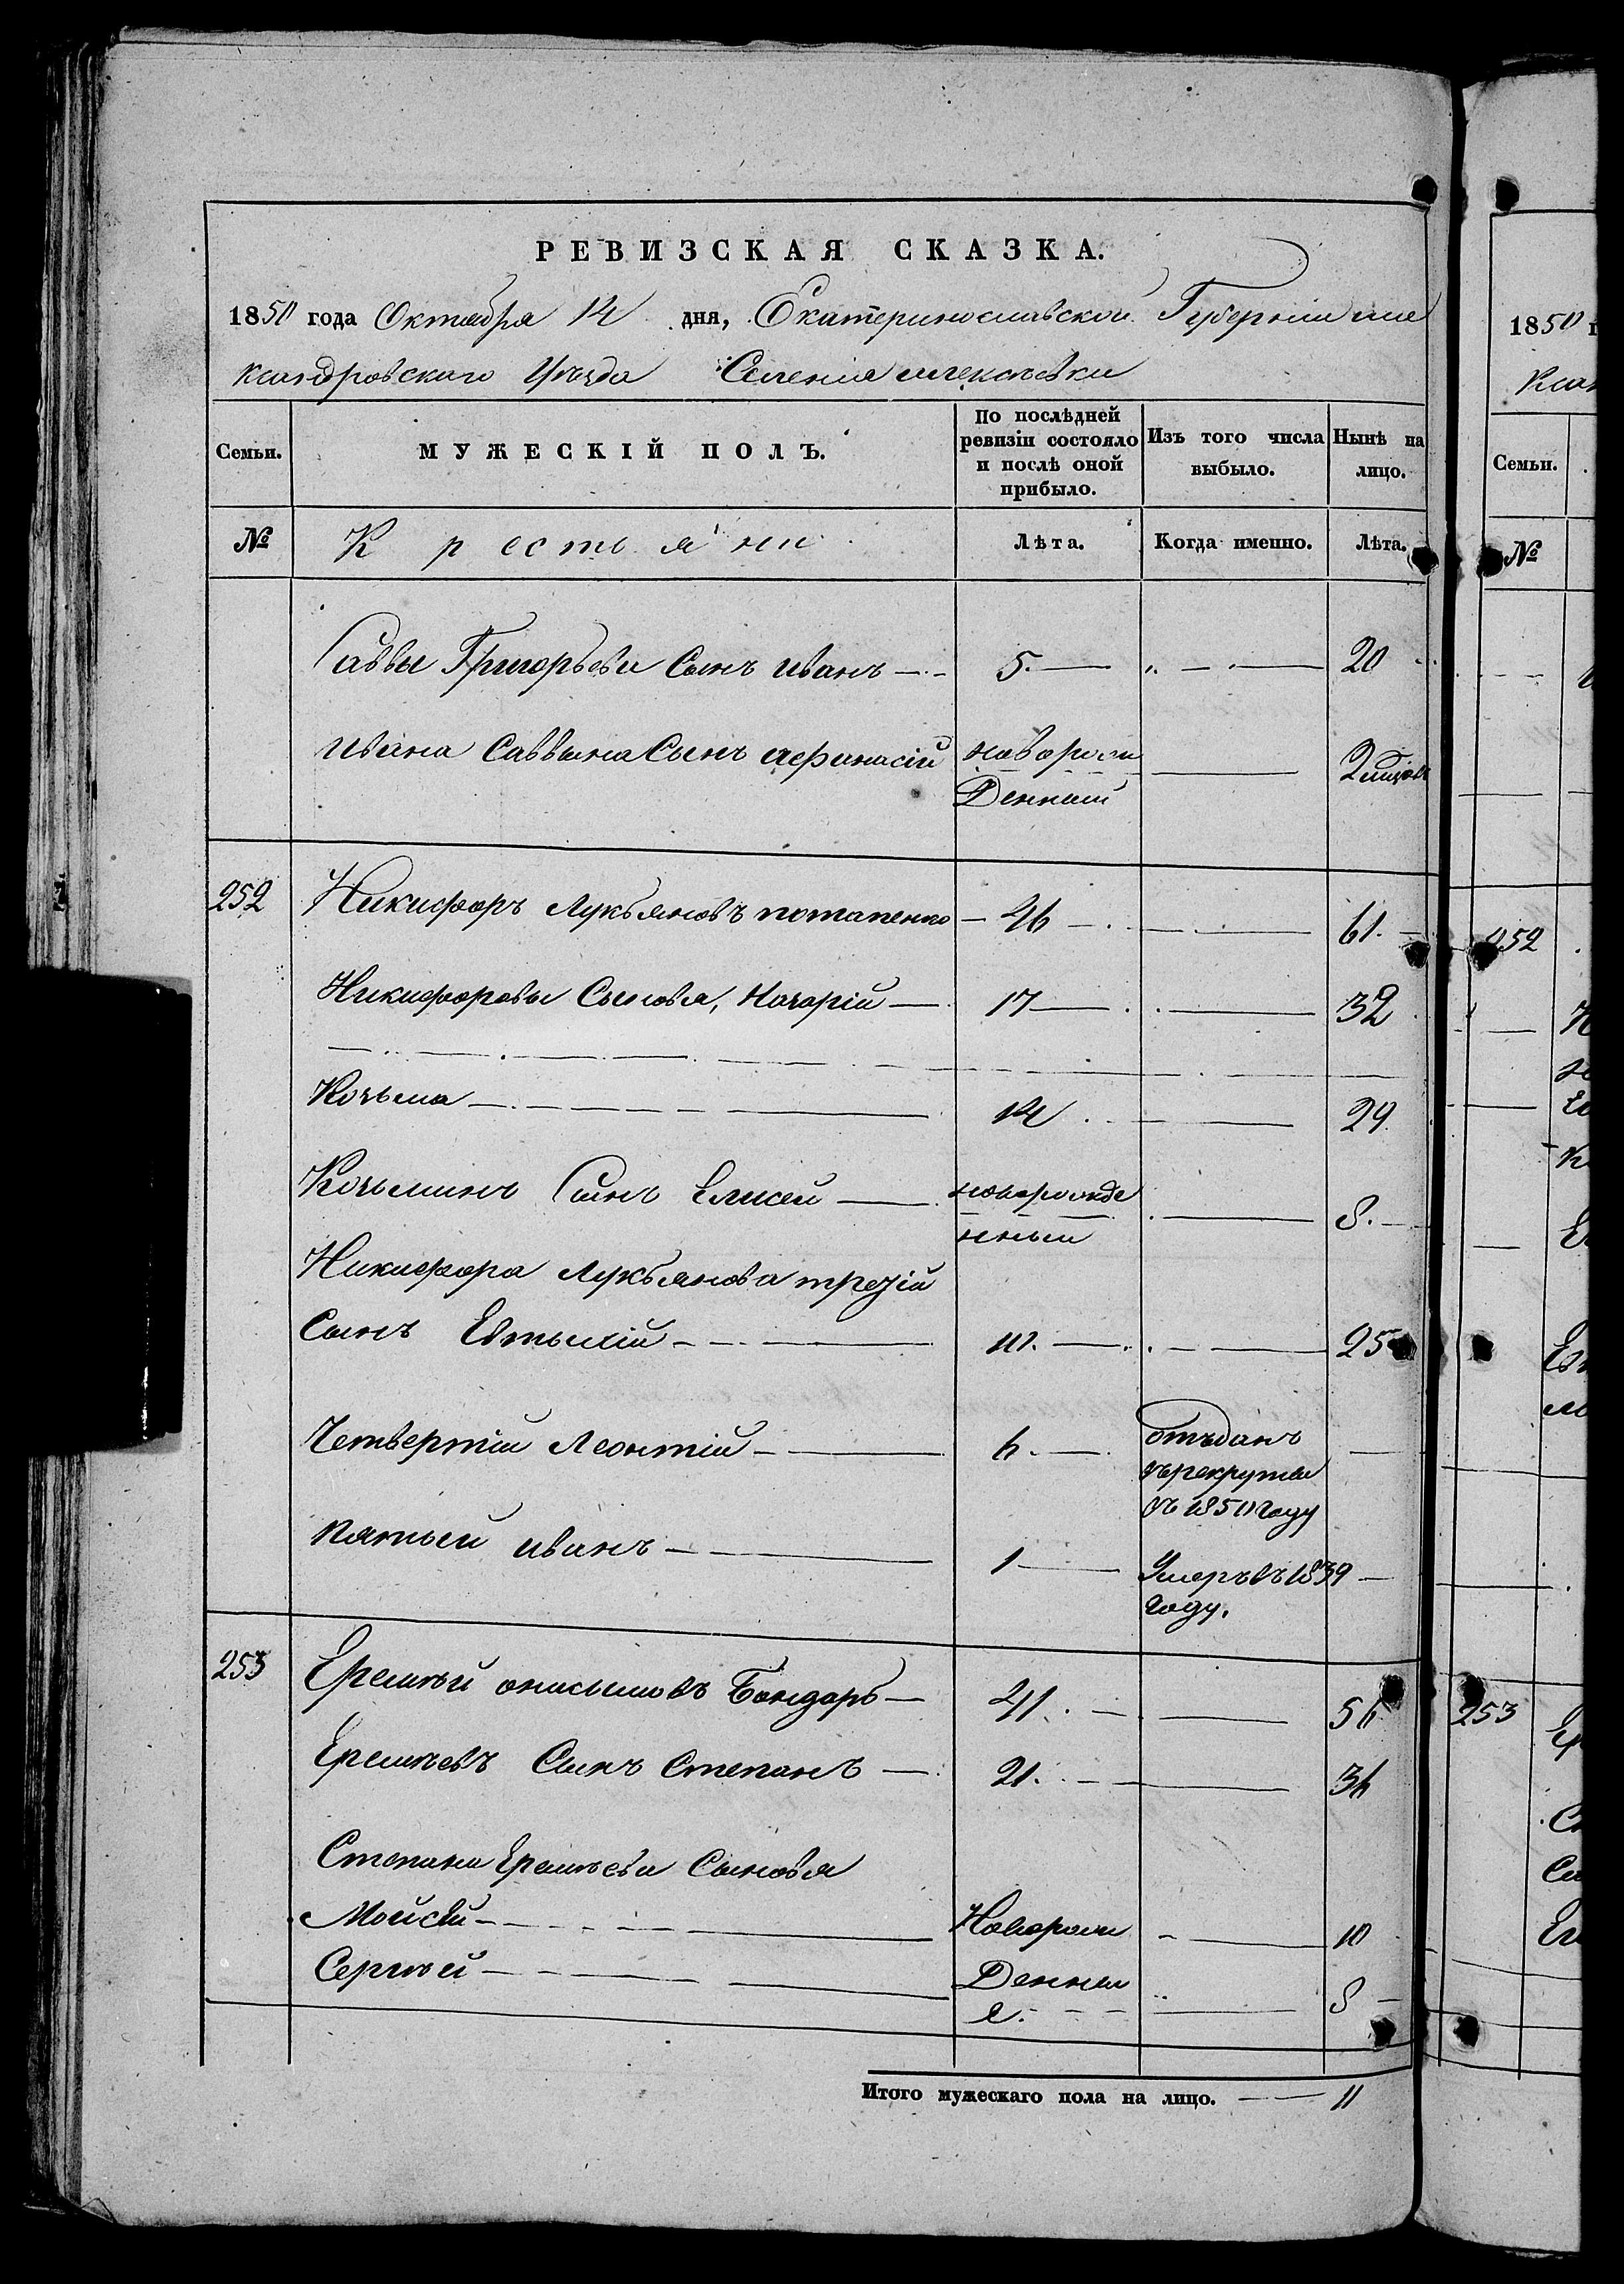 РЕВИЗСКАЯ СКАЗКА.
1850 года Октября 14 дня, Екатеринославской Губерніи але
ксандровскаго Уѣзда Селенія алексѣевки
Семьи. МУЖЕСКІЙ ПОЛЪ. По послѣдней ревизіи состояло и послѣ оной прибыло. Изъ того числа выбыло. Нынѣ на лицо.
№ Крестьяни Лѣта. Когда именно. Лѣта.
Саввы Григорьева Сынъ иванъ 5. 20
ивана Саввина Сынъ афанасій новорож 2
Денный
252 Никифоръ Лукьяновъ потапенко 46 61.
Никифоровы Сыновья, Назарій 17 32
Козьма 14 29
Козьминъ Сынъ Елисей новорожде 8.
нный
Никифора Лукьянова третій
Сынъ Евтыхій 10. 25
Четвертій Леонтій 6. Отъданъ
въ рекруты
въ 1850 году
пятый иванъ 1 Умеръ въ 1839
году.
253 Еремѣй онисимовъ Бондарь 41. 56
Еремѣевъ Сынъ Степанъ 21. 36
Степана Еремѣева Сыновья
Мойсѣй Новорож 10
Сергѣй Денны 8
е.
Итого мужескаго пола на лицо. 11
1850
Семьи.
№
252
253